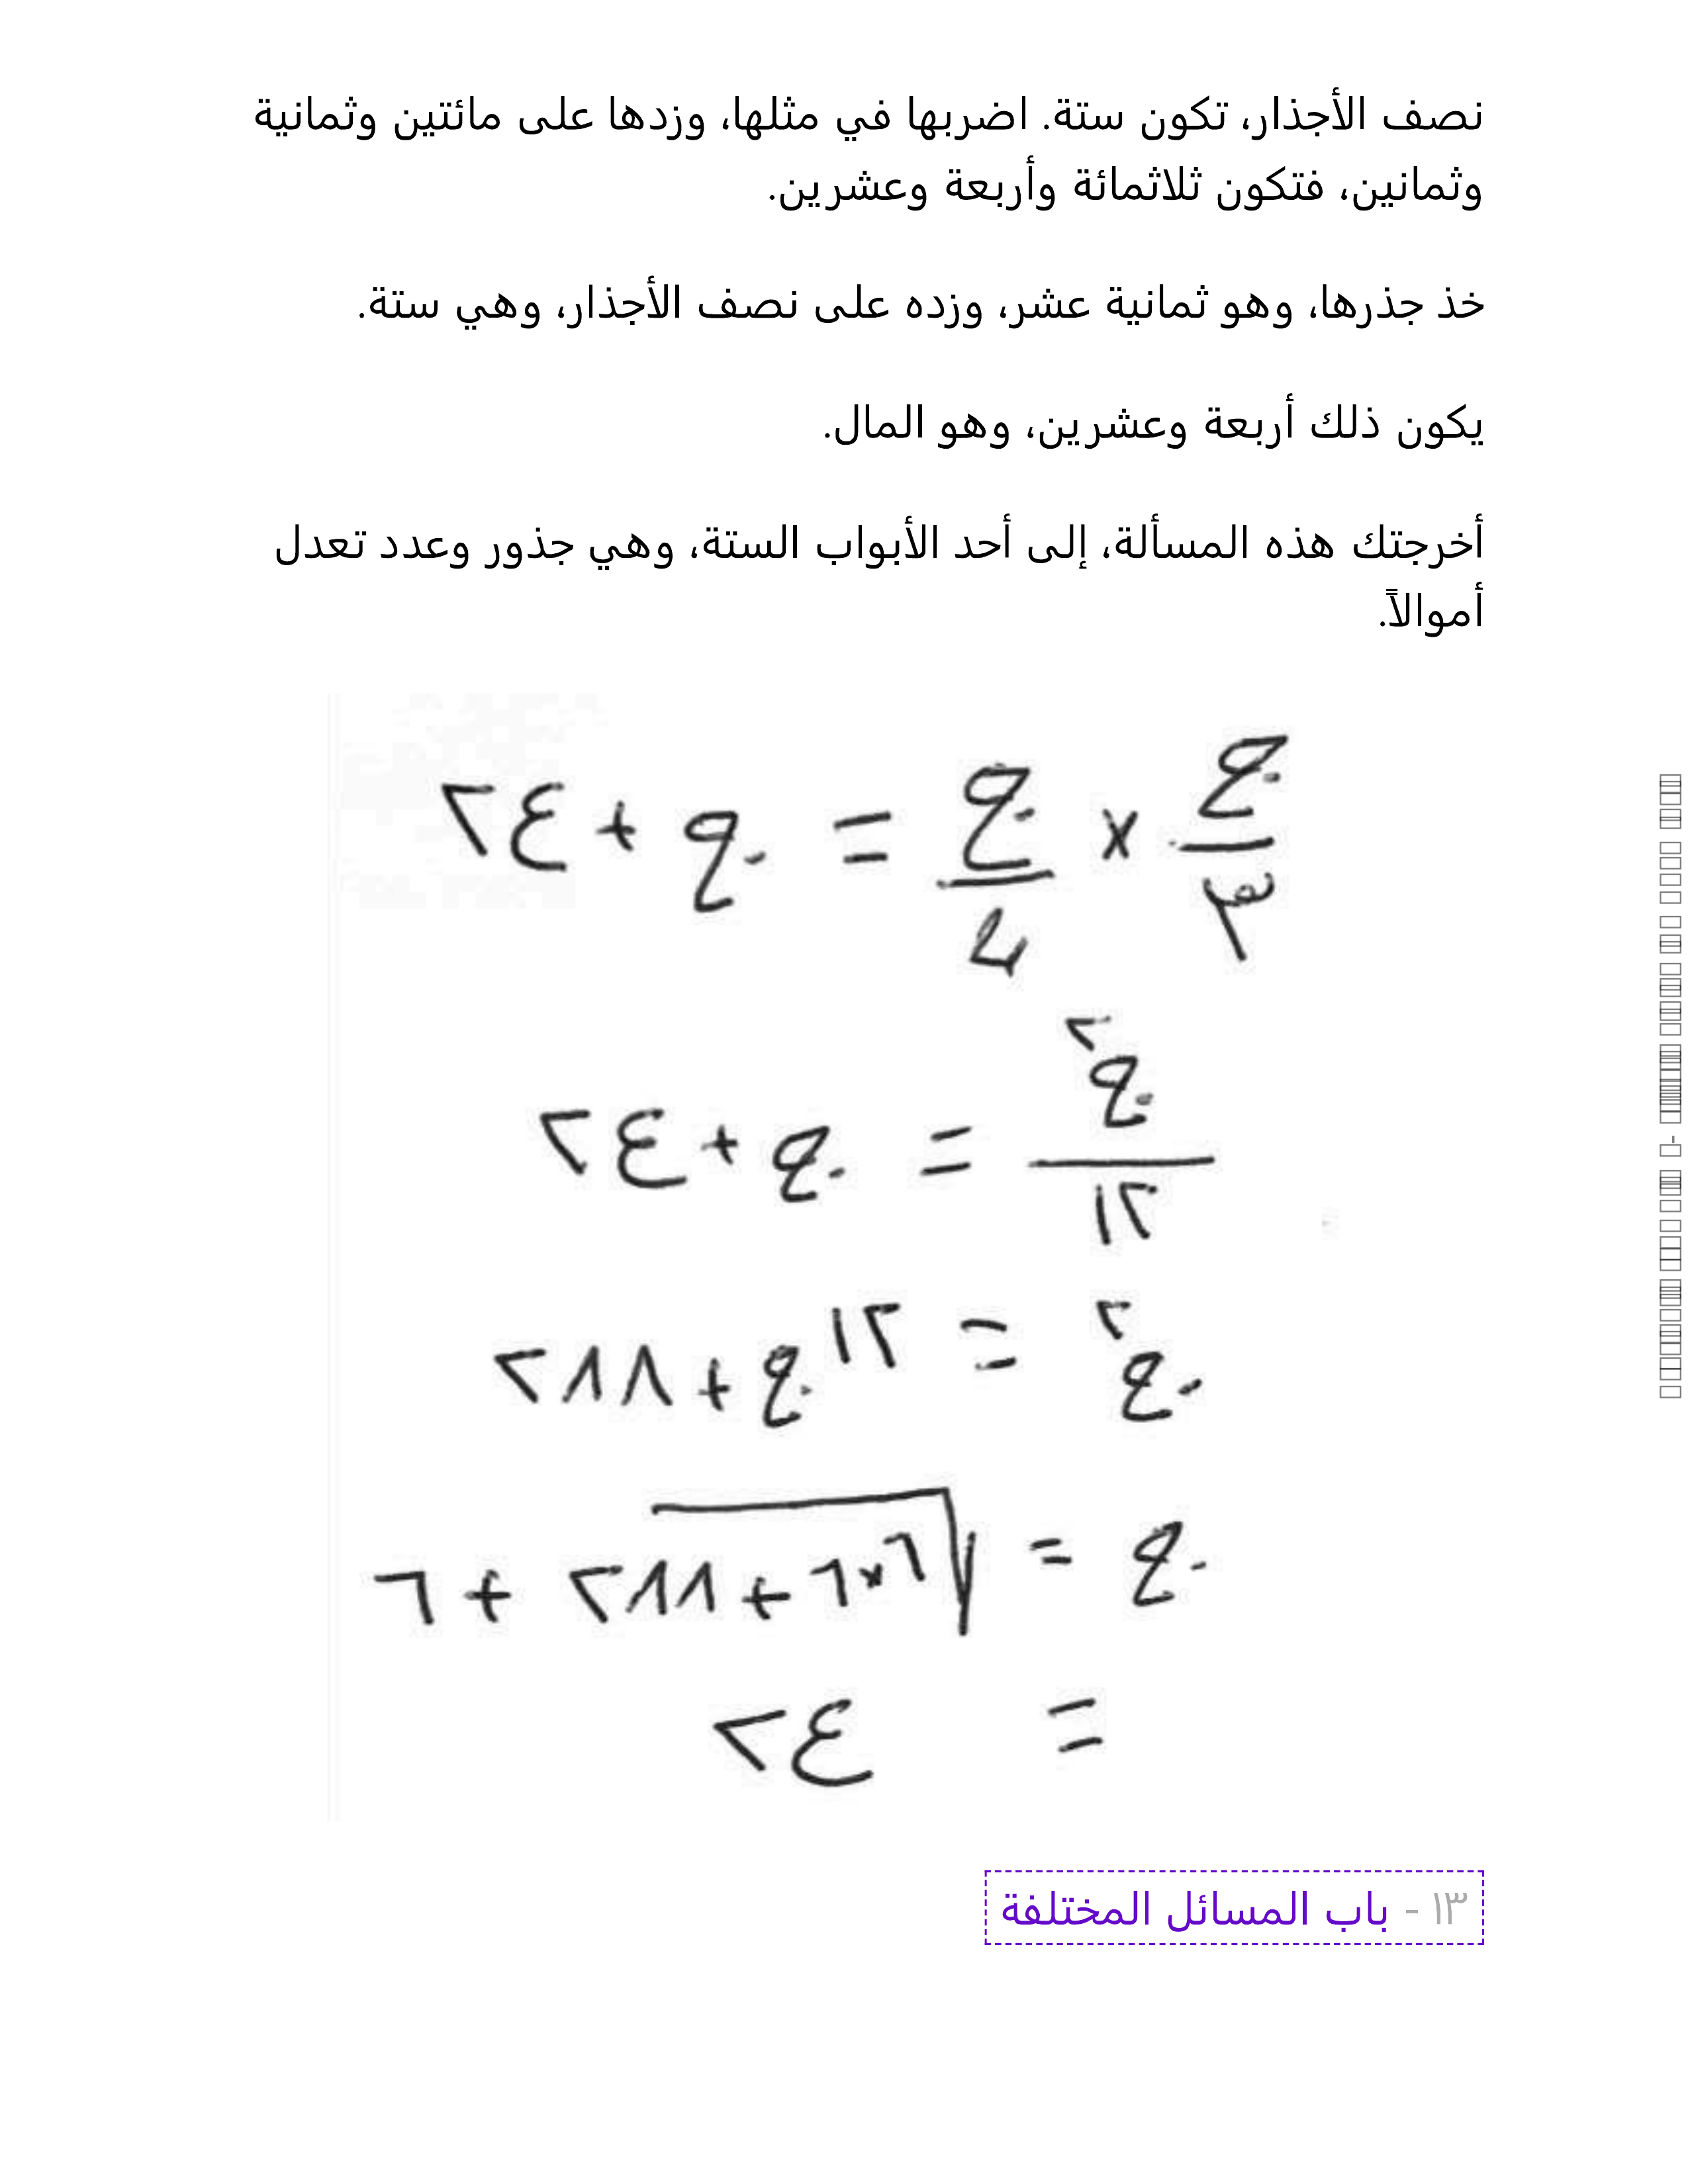 نصف الأجذار، تكون ستة. اضربها في مثلها، وزدها على مائتين وثمانية
وثمانين، فتكون ثلاثمائة وأربعة وعشرين.
خذ جذرها، وهو ثمانية عشر، وزده على نصف الأجذار، وهي ستة.
يكون ذلك أربعة وعشرين، وهو المال.
أخرجتك هذه المسألة، إلى أحد الأبواب الستة، وهي جذور وعدد تعدل
أموالاً.
ج/٣ × ج/٤ = ج + ٢٤
ج²/١٢ = ج + ٢٤
ج² = ١٢ ج + ٢٨٨
ج = √(٦×٦ + ٢٨٨) + ٦
= ٢٤
١٣ - باب المسائل المختلفة